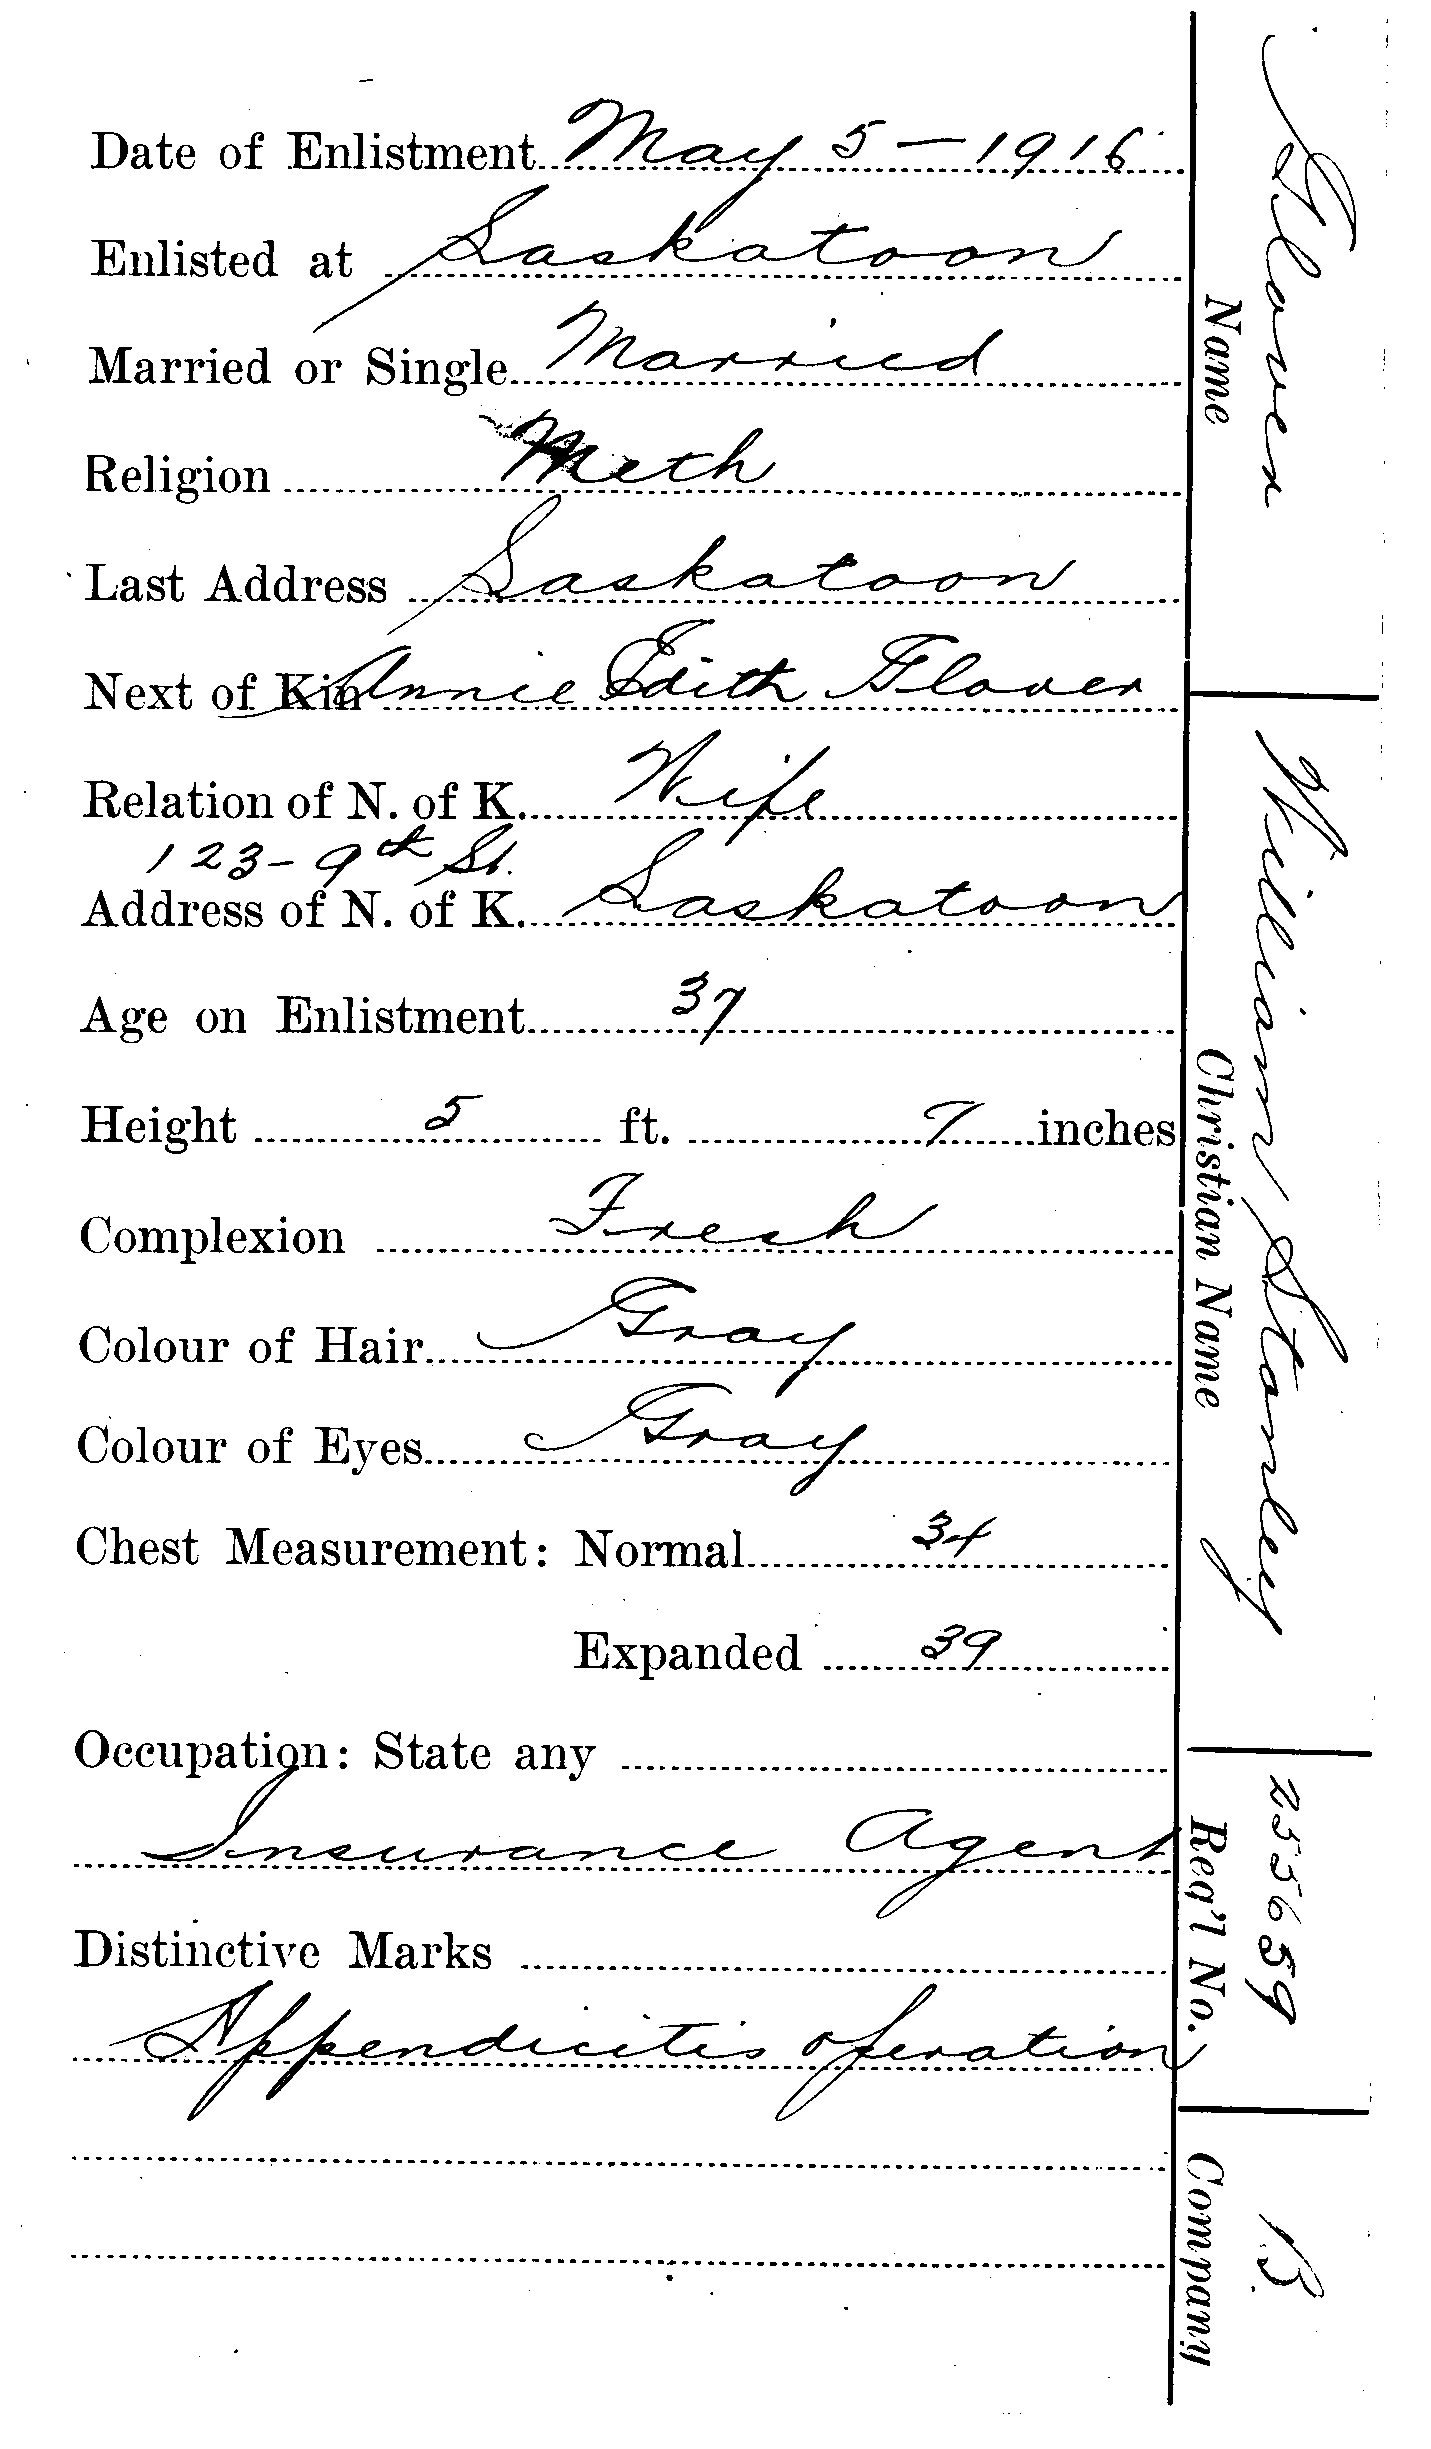 Date of Enlistment May 5 - 1916
Enlisted at Saskatoon
Married or Single Married
Religion Meth
Last Address Saskatoon
Next of Kin Annie Edith Glover
Relation of N. of K. Wife
123 - 9th St.
Address of N. of K. Saskatoon
Age on Enlistment 37
Height 5 ft. 7 inches
Complexion Fresh
Colour of Hair Gray
Colour of Eyes Gray
Chest Measurement: Normal 34
Expanded 39
Occupation: State any
Insurance Agent
Distinctive Marks
Appendicitis operation
Glover
Name
William Stanley
Christian Name
255659
Reg'l No.
B.
Company